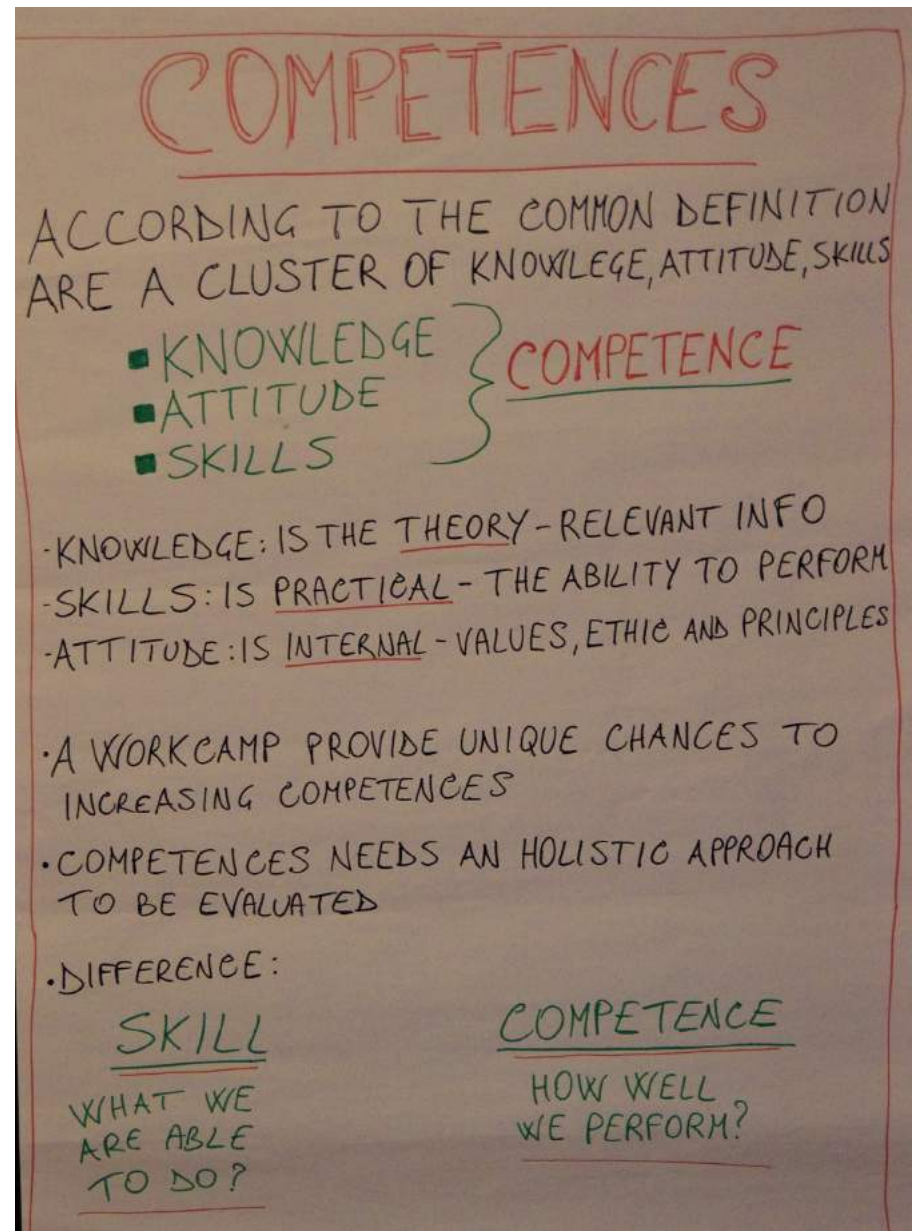 COMPETENCES
ACCORDING TO THE COMMON DEFINITION
ARE A CLUSTER OF KNOWLEGE, ATTITUDE, SKILLS
▪KNOWLEDGE
▪ATTITUDE
▪SKILLS
COMPETENCE
-KNOWLEDGE: IS THE THEORY - RELEVANT INFO
-SKILLS: IS PRACTICAL - THE ABILITY TO PERFORM
-ATTITUDE: IS INTERNAL - VALUES, ETHIC AND PRINCIPLES
·A WORKCAMP PROVIDE UNIQUE CHANCES TO
INCREASING COMPETENCES
·COMPETENCES NEEDS AN HOLISTIC APPROACH
TO BE EVALUATED
·DIFFERENCE:
SKILL
WHAT WE
ARE ABLE
TO DO?
COMPETENCE
HOW WELL
WE PERFORM?